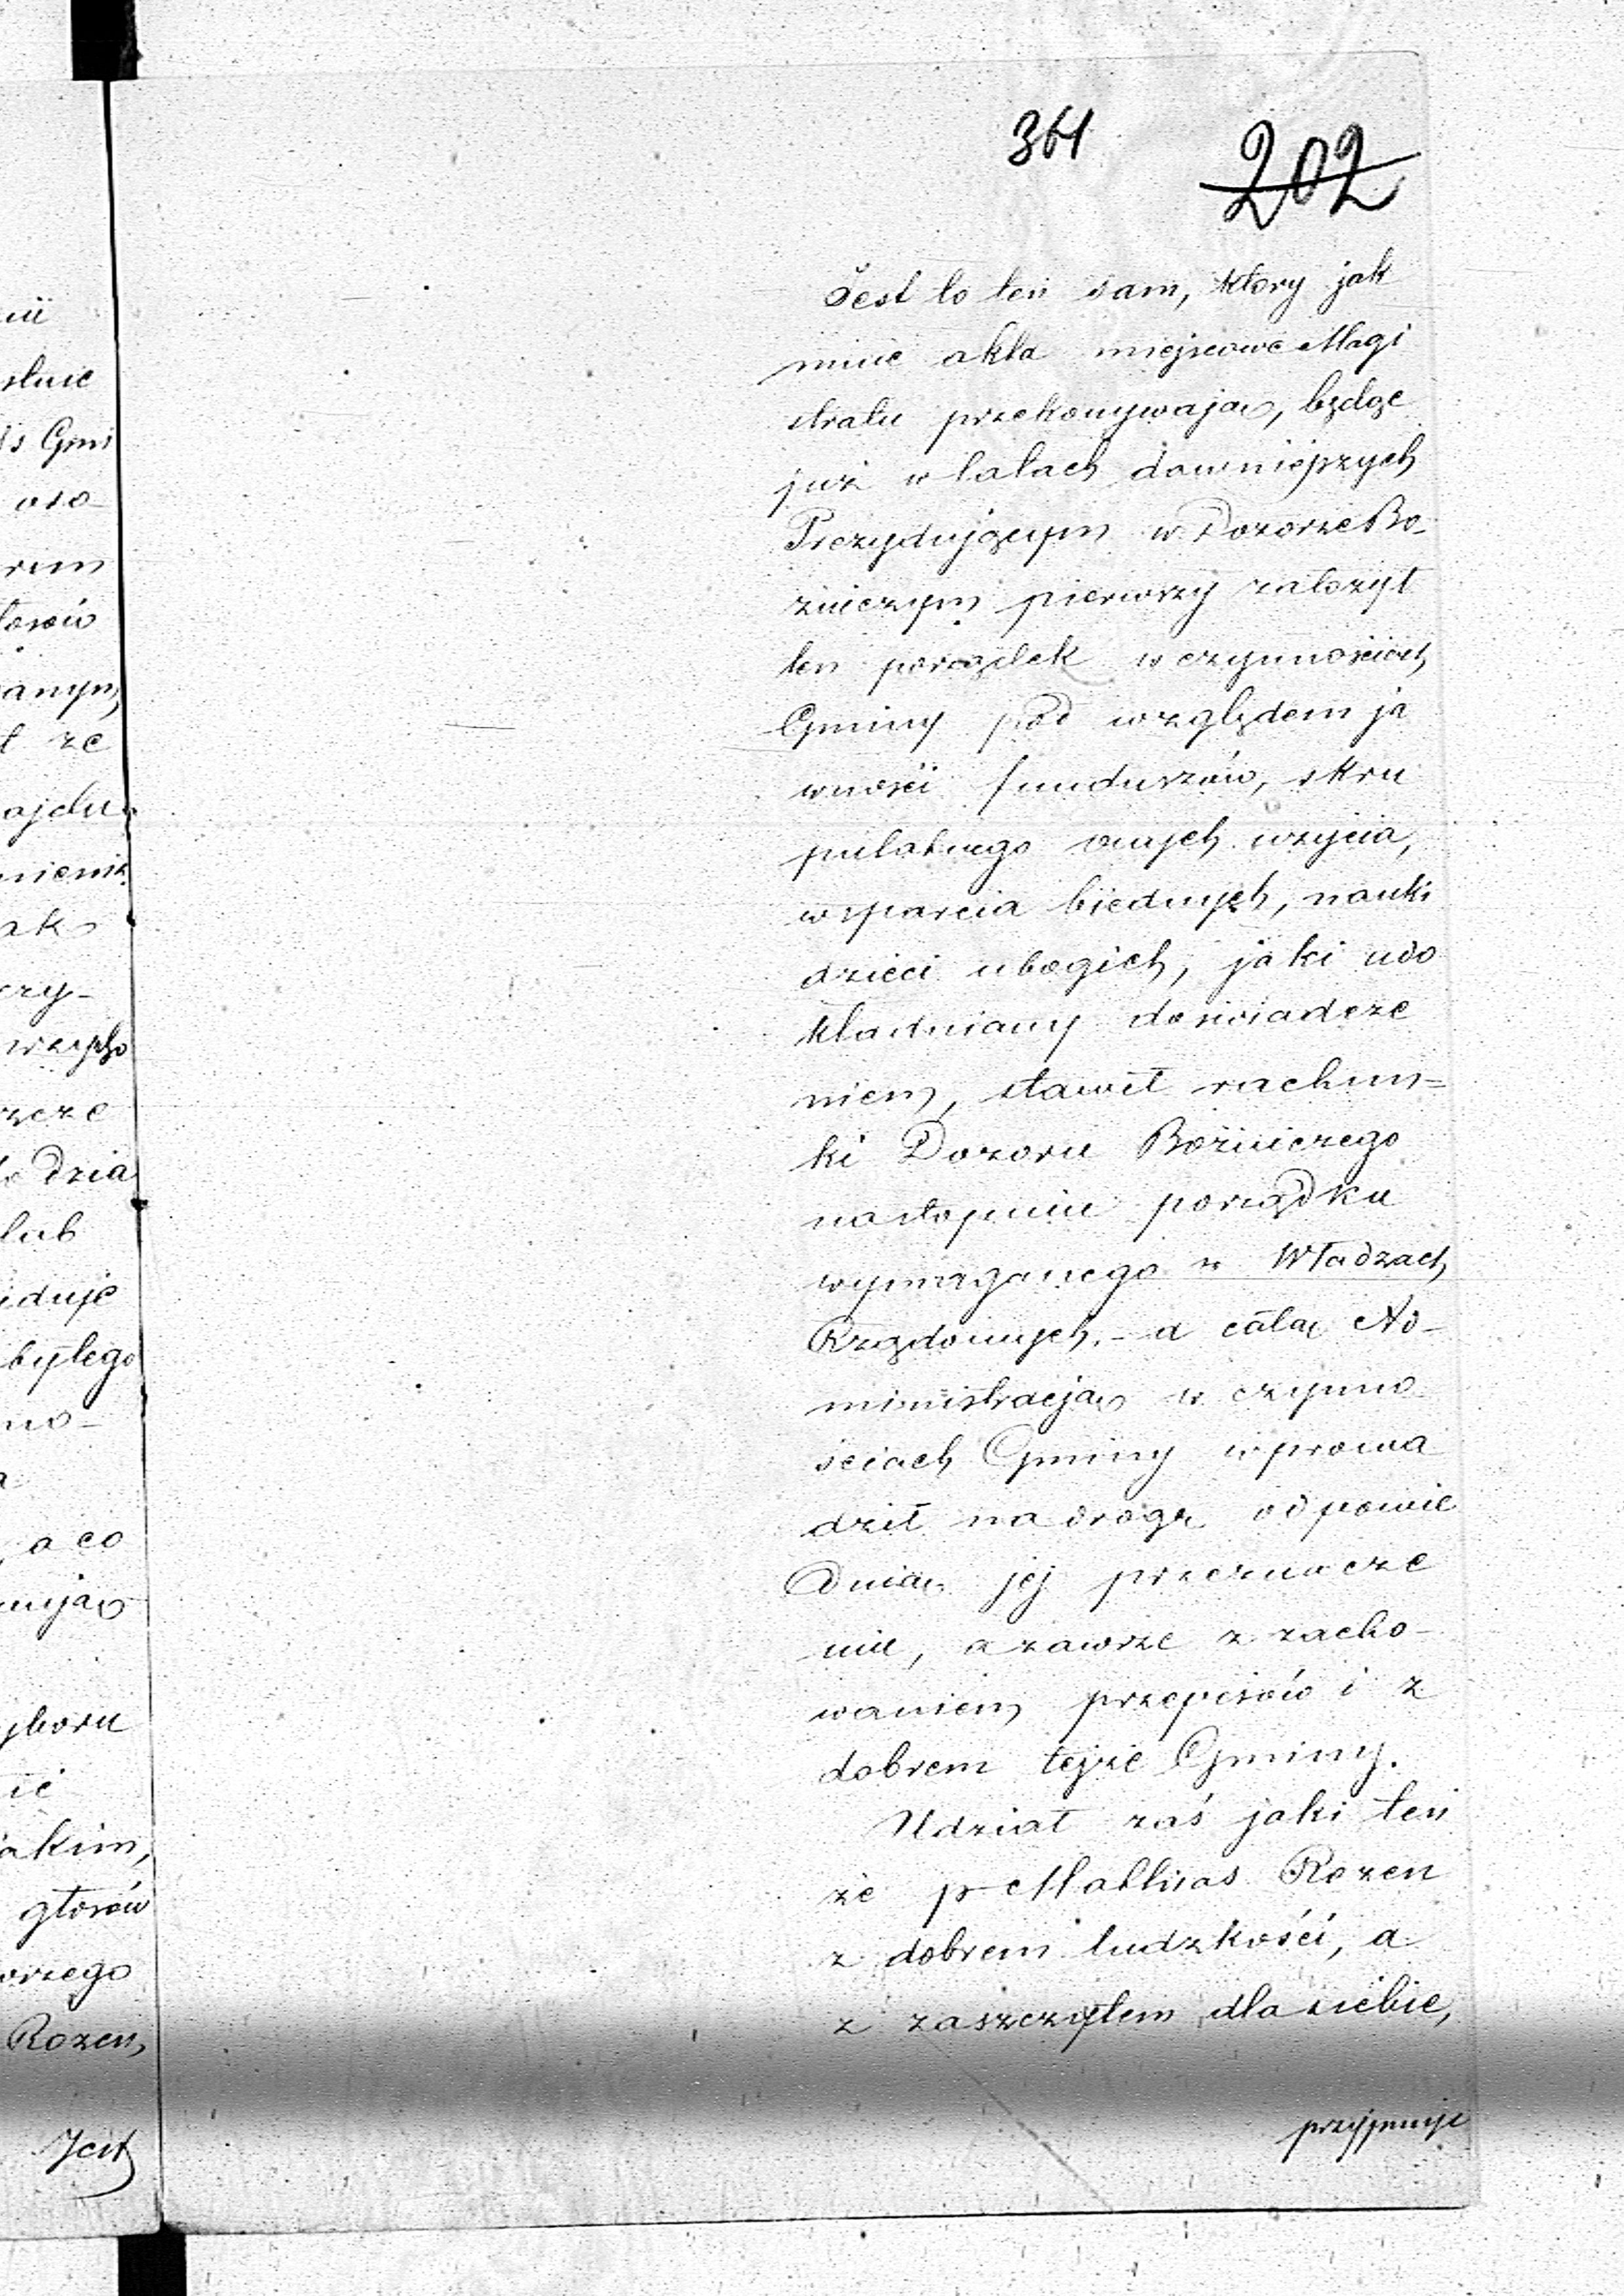 nii
słnie
Gmi
oso-
rem
łosów
anym,
ł że
ajdu-
mienia
ak
czy-
wszego
rzcze
Dzia
lub
iduje
byłego
no-
a co
mują
yboru
ić
akim,
głosów
orzego
Rozen,
Jest
361 202
Jest to ten sam, który jak
mnie akta miejscowe Magi
stratu przekonywają, będąc
już w latach dawniejszych
Prezydującym w Dozorze Bo-
żniczym pierwszy założył
ten porządek w czynnościach
Gminy pod względem ja
wności funduszów, skru
pulatnego onych użycia,
wsparcia biednych, nauki
dzieci ubogich, jaki udo
kładniany doświadcze
niem, stawił rachun-
ki Dozoru Bożniczego
na stopniu porządku
wymaganego w Władzach
Rządowych. - a całą Ad-
ministracją w czynno
ściach Gminy wprowa
dził na drogę odpowie
Dnią jej przeznacze
niu, a zawsze z zacho-
waniem przepisów i z
dobrem tejże Gminy.
Udział zaś jaki ten
że p Mathias Rozen
z dobrem ludzkości, a
z zaszczytem dla siebie,
przyjmuje